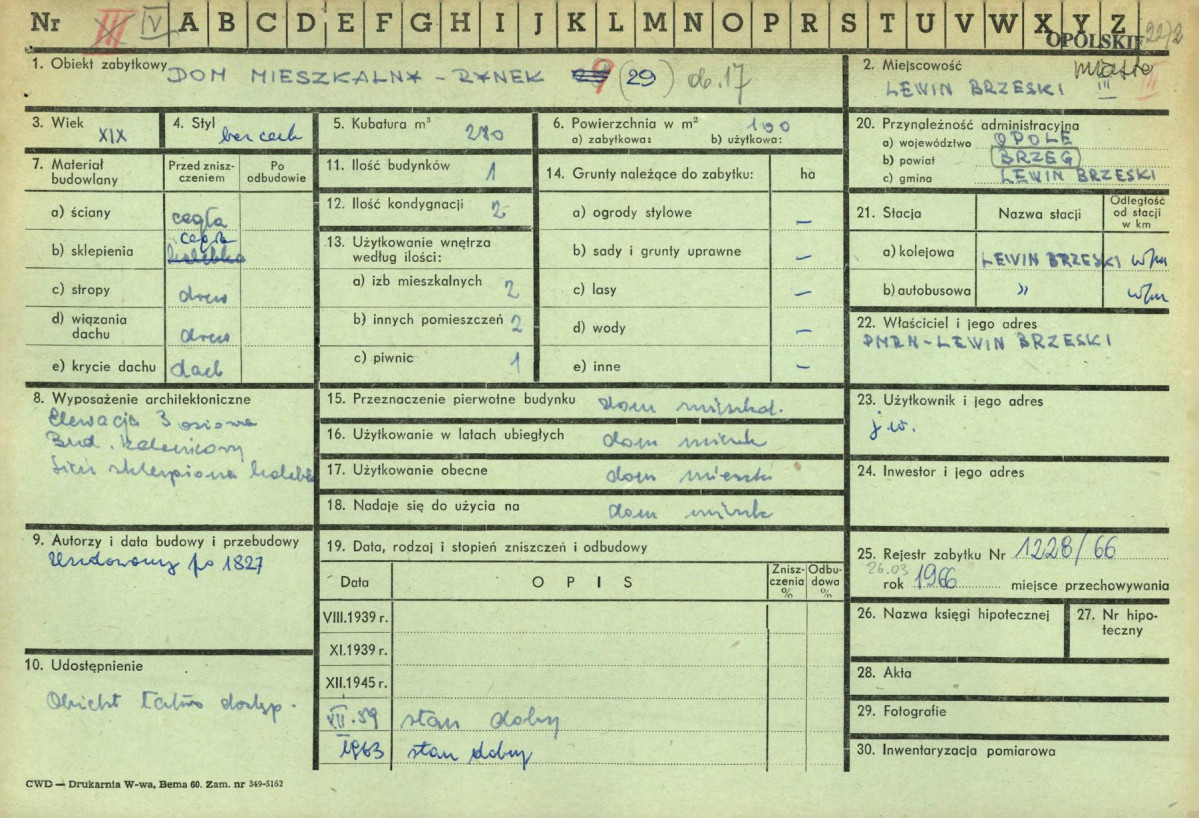 Nr III V A B C D E F G H I J K L M N O P R S T U V W X Y Z
OPOLSKIE 22/2
1. Obiekt zabytkowy DOM MIESZKALNY - RYNEK 9 (29) ob. 17
2. Miejscowość miasto
LEWIN BRZESKI III III
3. Wiek XIX
4. Styl bez cech
5. Kubatura m³ 280
6. Powierzchnia w m² 100
a) zabytkowa: b) użytkowa:
20. Przynależność administracyjna
a) województwo OPOLE
b) powiat BRZEG
c) gmina LEWIN BRZESKI
7. Materiał budowlany
Przed zniszczeniem
Po odbudowie
a) ściany cegła
b) sklepienia cegła kolebka
c) stropy drew
d) wiązania dachu drew
e) krycie dachu dach
11. Ilość budynków 1
12. Ilość kondygnacji 2
13. Użytkowanie wnętrza
według ilości:
a) izb mieszkalnych 2
b) innych pomieszczeń 2
c) piwnic 1
14. Grunty należące do zabytku: ha
a) ogrody stylowe —
b) sady i grunty uprawne —
c) lasy —
d) wody —
e) inne —
21. Stacja Nazwa stacji Odległość od stacji w km
a) kolejowa LEWIN BRZESKI w/m
b) autobusowa " w/m
22. Właściciel i jego adres
PMRN - LEWIN BRZESKI
8. Wyposażenie architektoniczne
Elewacja 3 osiowa
Bud. kalenicowy
Sień sklepiona kolebk
15. Przeznaczenie pierwotne budynku dom mieszkal.
16. Użytkowanie w latach ubiegłych dom mieszk
17. Użytkowanie obecne dom mieszk
18. Nadaje się do użycia na dom mieszk
23. Użytkownik i jego adres
j.w.
24. Inwestor i jego adres
9. Autorzy i data budowy i przebudowy
Zbudowany po 1827
19. Data, rodzaj i stopień zniszczeń i odbudowy
Data OPIS Zniszczenia % Odbudowa %
VIII.1939 r.
XI.1939 r.
XII.1945 r.
VII.59 stan dobry
1963 stan dobry
25. Rejestr zabytku Nr 1228/66
26.03
rok 1966 miejsce przechowywania
26. Nazwa księgi hipotecznej
27. Nr hipoteczny
10. Udostępnienie
Obiekt łatwo dostęp.
28. Akta
29. Fotografie
30. Inwentaryzacja pomiarowa
CWD — Drukarnia W-wa, Bema 60. Zam. nr 349-5162